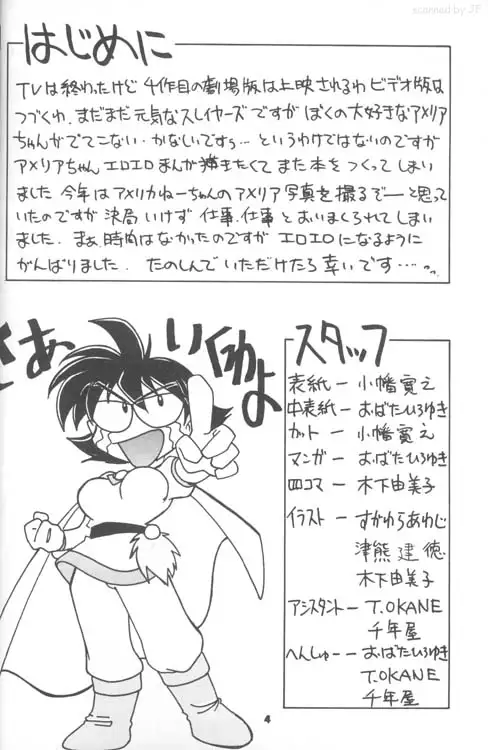 scanned by JF
はじめに
TVは終わったけど 4作目の劇場版は上映されるわ ビデオ版は
つづくわ、まだまだ元気なスレイヤーズですが ぼくの大好きなアメリア
ちゃんがでてこない・かなしいですぅ…というわけではないのですが
アメリアちゃん エロエロまんが描きたくて また本をつくってしまい
ました 今年はアメリカねーちゃんのアメリア写真を撮るぞーと思って
いたのですが 決局 いけず 仕事、仕事 と おいまくられてしまい
ました. まぁ、時間はなかったのですが エロエロになるように
がんばりました. たのしんでいただけたら 幸いです……
さぁ
い
スタッフ
表紙ー 小幡寛之
中表紙ー おばたひろゆき
カットー 小幡寛之
マンガー おばたひろゆき
四コマー 木下由美子
イラストー すがわらあわじ
津熊建徳
木下由美子
アシスタントー T.OKANE
千年屋
へんしゅーー おばたひろゆき
T.OKANE
千年屋
4